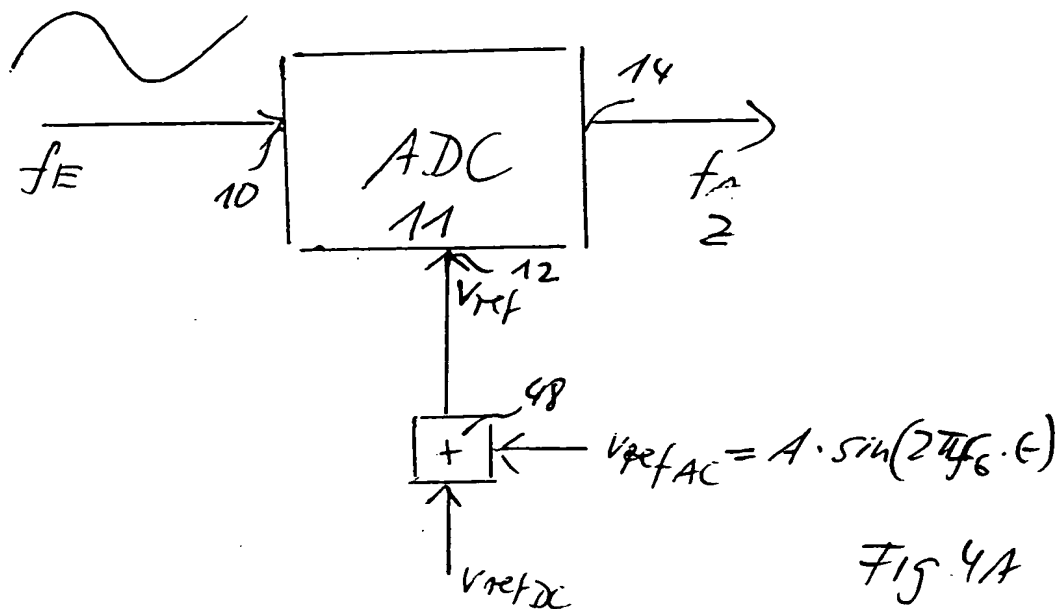 14
fE
10
ADC
11
fA
2
12
Vref
48
+
VrefAC = A · sin(2πfG · t)
VrefDC
Fig. 4A